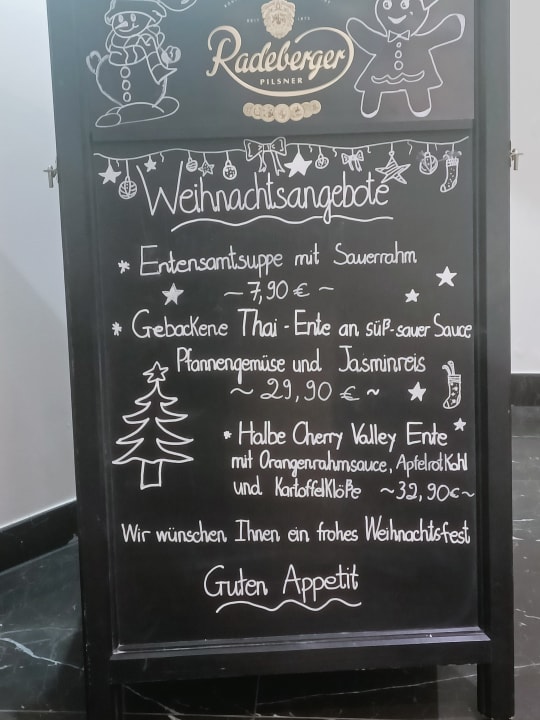 Radeberger
PILSNER
Weihnachtsangebote
* Entensamtsuppe mit Sauerrahm
~ 7,90 € ~
* Gebackene Thai-Ente an süß-sauer Sauce
Pfannengemüse und Jasminreis
~ 29,90 € ~
* Halbe Cherry Valley Ente
mit Orangenrahmsauce, Apfelrotkohl
und Kartoffelklöße ~32,90€~
Wir wünschen Ihnen ein frohes Weihnachtsfest
Guten Appetit